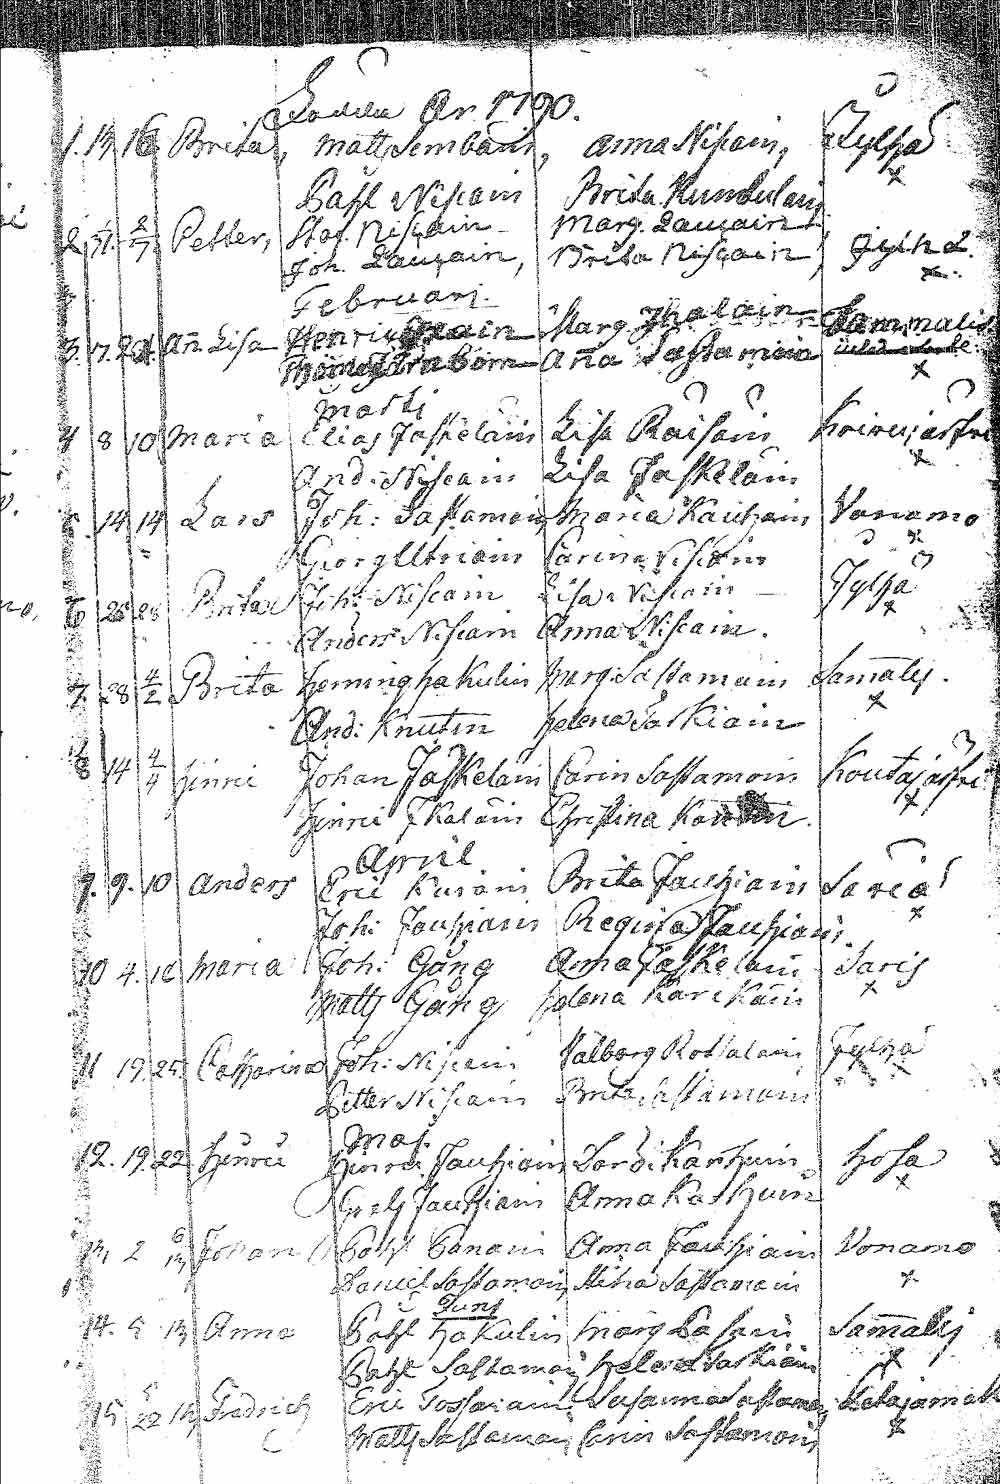 Födde År 1790.
1. 13 16 Brita, Matts Sembain, Anna Niskain, Jylhä
Påhl Niskain Brita Kumbulain
2. Petter, Staf. Niskain Marg. Lauxain
Joh. Lauxain, Brita Niskain, Jylhä.
Februari
3. 17. 21. Añ Lisa Henric Marg. Ihalain
Aña Sastamoin
Marti
4 8 10 Maria Elias Jaskeläin Lisa Räisäin Koirujärfvi
And: Niskain Lisa Jaskeläin
5. 14 14 Lars Joh: Sastamoin Maria Kauhain Vonamo
Georg Utriain Carin Niskain
6 25 28 Brita Joh: Niskain Lisa Niskain Jylhä
Anders Niskain Anna Niskain.
7. 28 4/2 Brita Heming Hakulin Marg: Sastamoin Samalis.
And: Knutin Helena Saskiain
8 14 4/4 Hinric Johan Jaskelain Carin Sastamoin Koutajärfvi
Hinric Ikalain Christina
April
9. 9. 10 Anders Eric Kuräin Brita Jauhiain Saria
Joh: Jauhiain Regina Jauhiain.
10 4. 12 Maria Joh: Gång Anna Jaskelain Saris
Matts Gång Helena Karikain
11 19. 25 Catharina Joh: Niskain Valborg Rotsalain Jylhä
Petter Niskain Brita Sastamoin
Maj.
12. 19. 22 Hinric Hinric Jauhiain Lardi Karhuin Hosa
Grels Jauhiain Anna Karhuin
13. 2 6/13 Johan Påhl Panain Anna Jauhiain Vonamo
Daniel Sastamoin Stina Sastamoin
Junj
14. 5 13 Anna Påhl Hakulin Marg Pasain Samalis
Påhl Sastamoin Helena Saskiain
15 Fredrich Eric Tossavain Susanna Sastamoin
Matts Sastamoin Carin Sastamoin